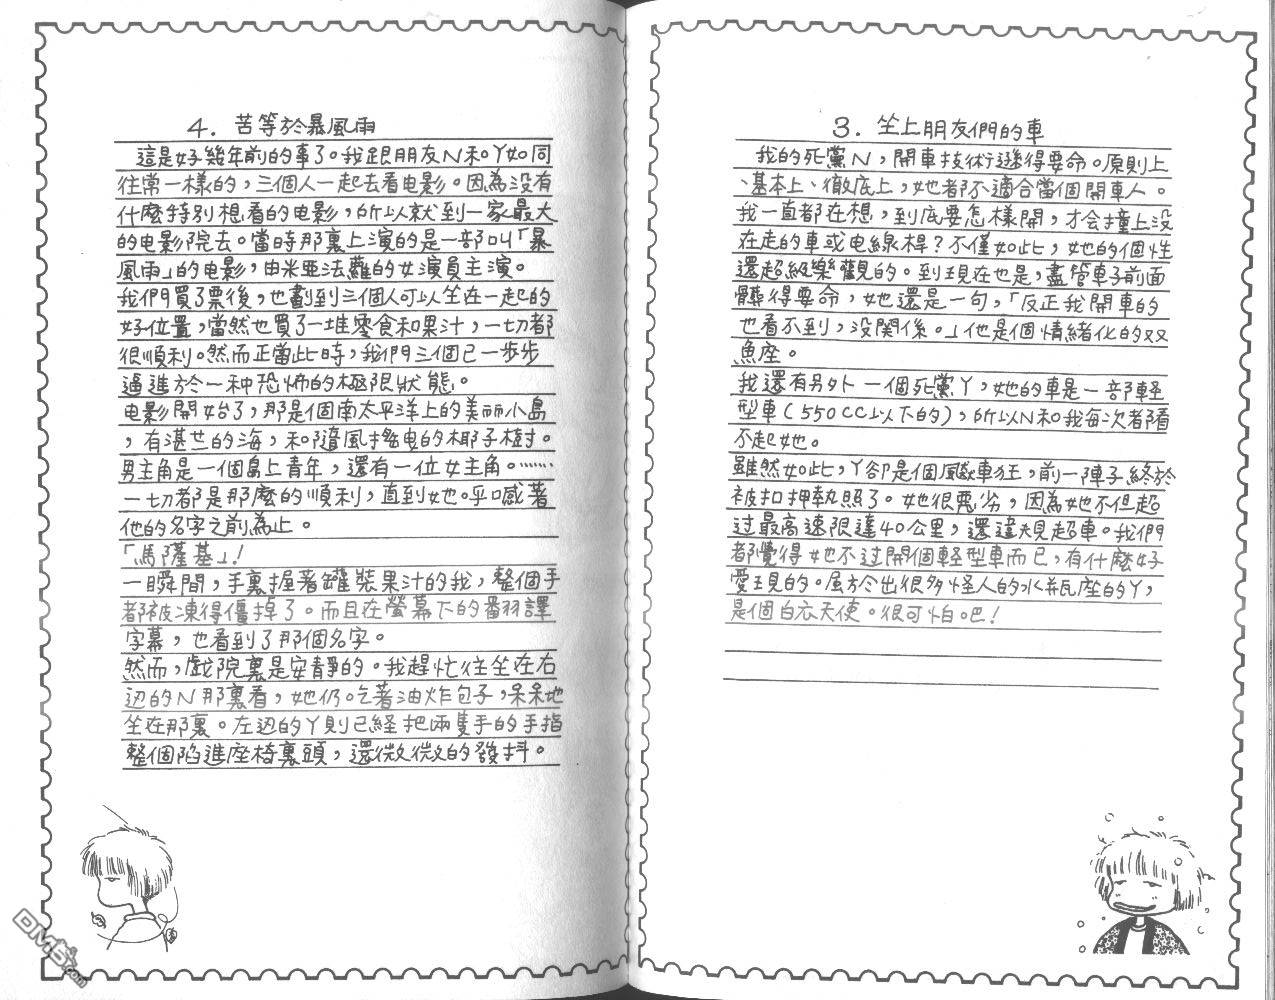 3. 坐上朋友們的車
我的死黨N，開車技術遜得要命。原則上
、基本上、徹底上，她都不適合當個開車人。
我一直都在想，到底要怎樣開，才会撞上没
在走的車或电線桿？不僅如此，她的個性
還超級樂觀的。到現在也是，盡管車子前面
髒得要命，她還是一句，「反正我開車的
也看不到，没関係。」他是個情緒化的双
魚座。
我還有另外一個死黨丫，她的車是一部軽
型車（550CC以下的），所以N和我每次都看
不起她。
雖然如此，丫卻是個飆車狂，前一陣子終於
被扣押執照了。她很悪劣，因為她不但超
过最高速限達40公里，還違規超車。我們
都覺得她不过開個軽型車而已，有什麼好
愛現的。屬於出很多怪人的水瓶座的丫，
是個白衣天使。很可怕吧！
4. 苦等於暴風雨
這是好幾年前的事了。我跟朋友N和丫如同
往常一樣的，三個人一起去看电影。因為没有
什麼特別想看的电影，所以就到一家最大
的电影院去。當時那裏上演的是一部叫「暴
風雨」的电影，由米亞法蘿的女演員主演。
我們買了票後，也劃到三個人可以坐在一起的
好位置，當然也買了一堆零食和果汁，一切都
很順利。然而正當此時，我們三個已一步步
逼進於一种恐怖的極限狀態。
电影開始了，那是個南太平洋上的美丽小島
，有湛芷的海，和隨風搖曳的椰子樹。
男主角是一個島上青年，還有一位女主角。……
一切都是那麼的順利，直到她呼喊著
他的名字之前為止。
「馬薩基」！
一瞬間，手裏握著罐裝果汁的我，整個手
都被凍得僵掉了。而且在螢幕下的翻譯
字幕，也看到了那個名字。
然而，戲院裏是安靜的。我趕忙往坐在右
边的N那裏看，她仍吃著油炸包子，呆呆地
坐在那裏。左边的丫則已経把兩隻手的手指
整個陷進座椅裏頭，還微微的發抖。
DM5.com